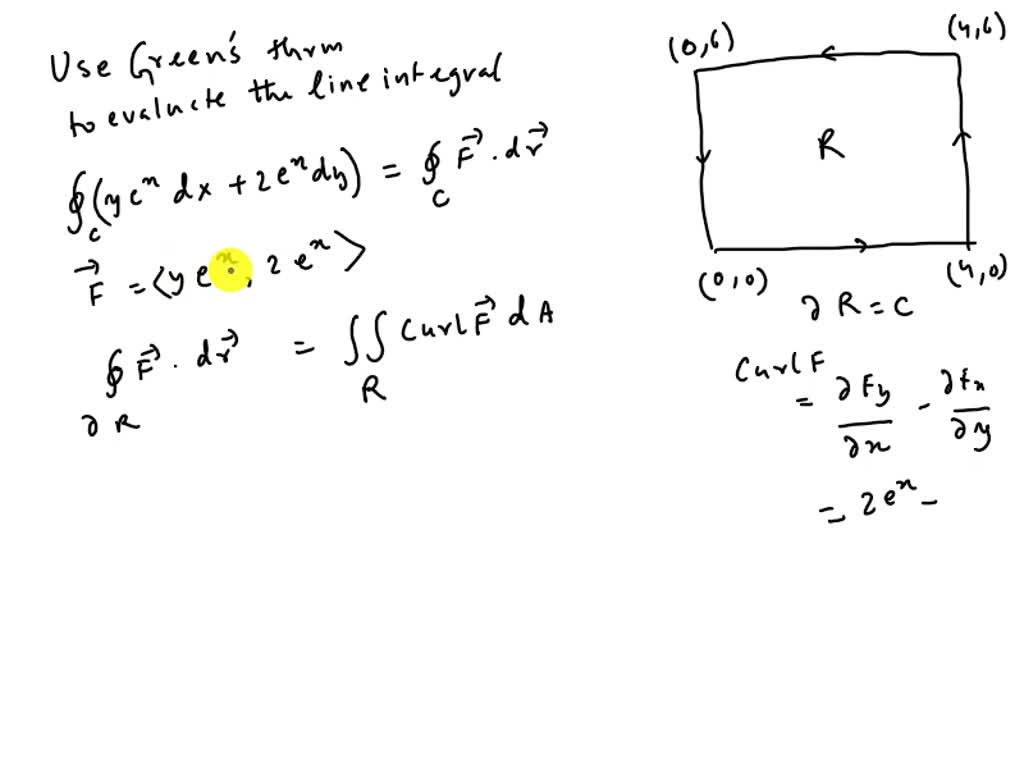 Use Green's thrm
to evaluate the line integral
∮_C (y e^x dx + 2 e^x dy) = ∮_C F⃗ · dr⃗
F⃗ = ⟨y e^x, 2 e^x⟩
∮_∂R F⃗ · dr⃗ = ∬_R Curl F⃗ dA
(0,6) (4,6)
R
(0,0) (4,0)
∂R = C
Curl F
= ∂Fy/∂x - ∂Fx/∂y
= 2e^x -